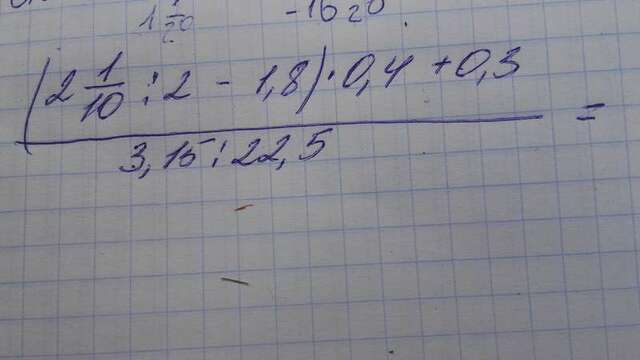 1 1/20 -16 20
(2 1/10 : 2 - 1,8) · 0,4 + 0,3 =
3,15 : 22,5